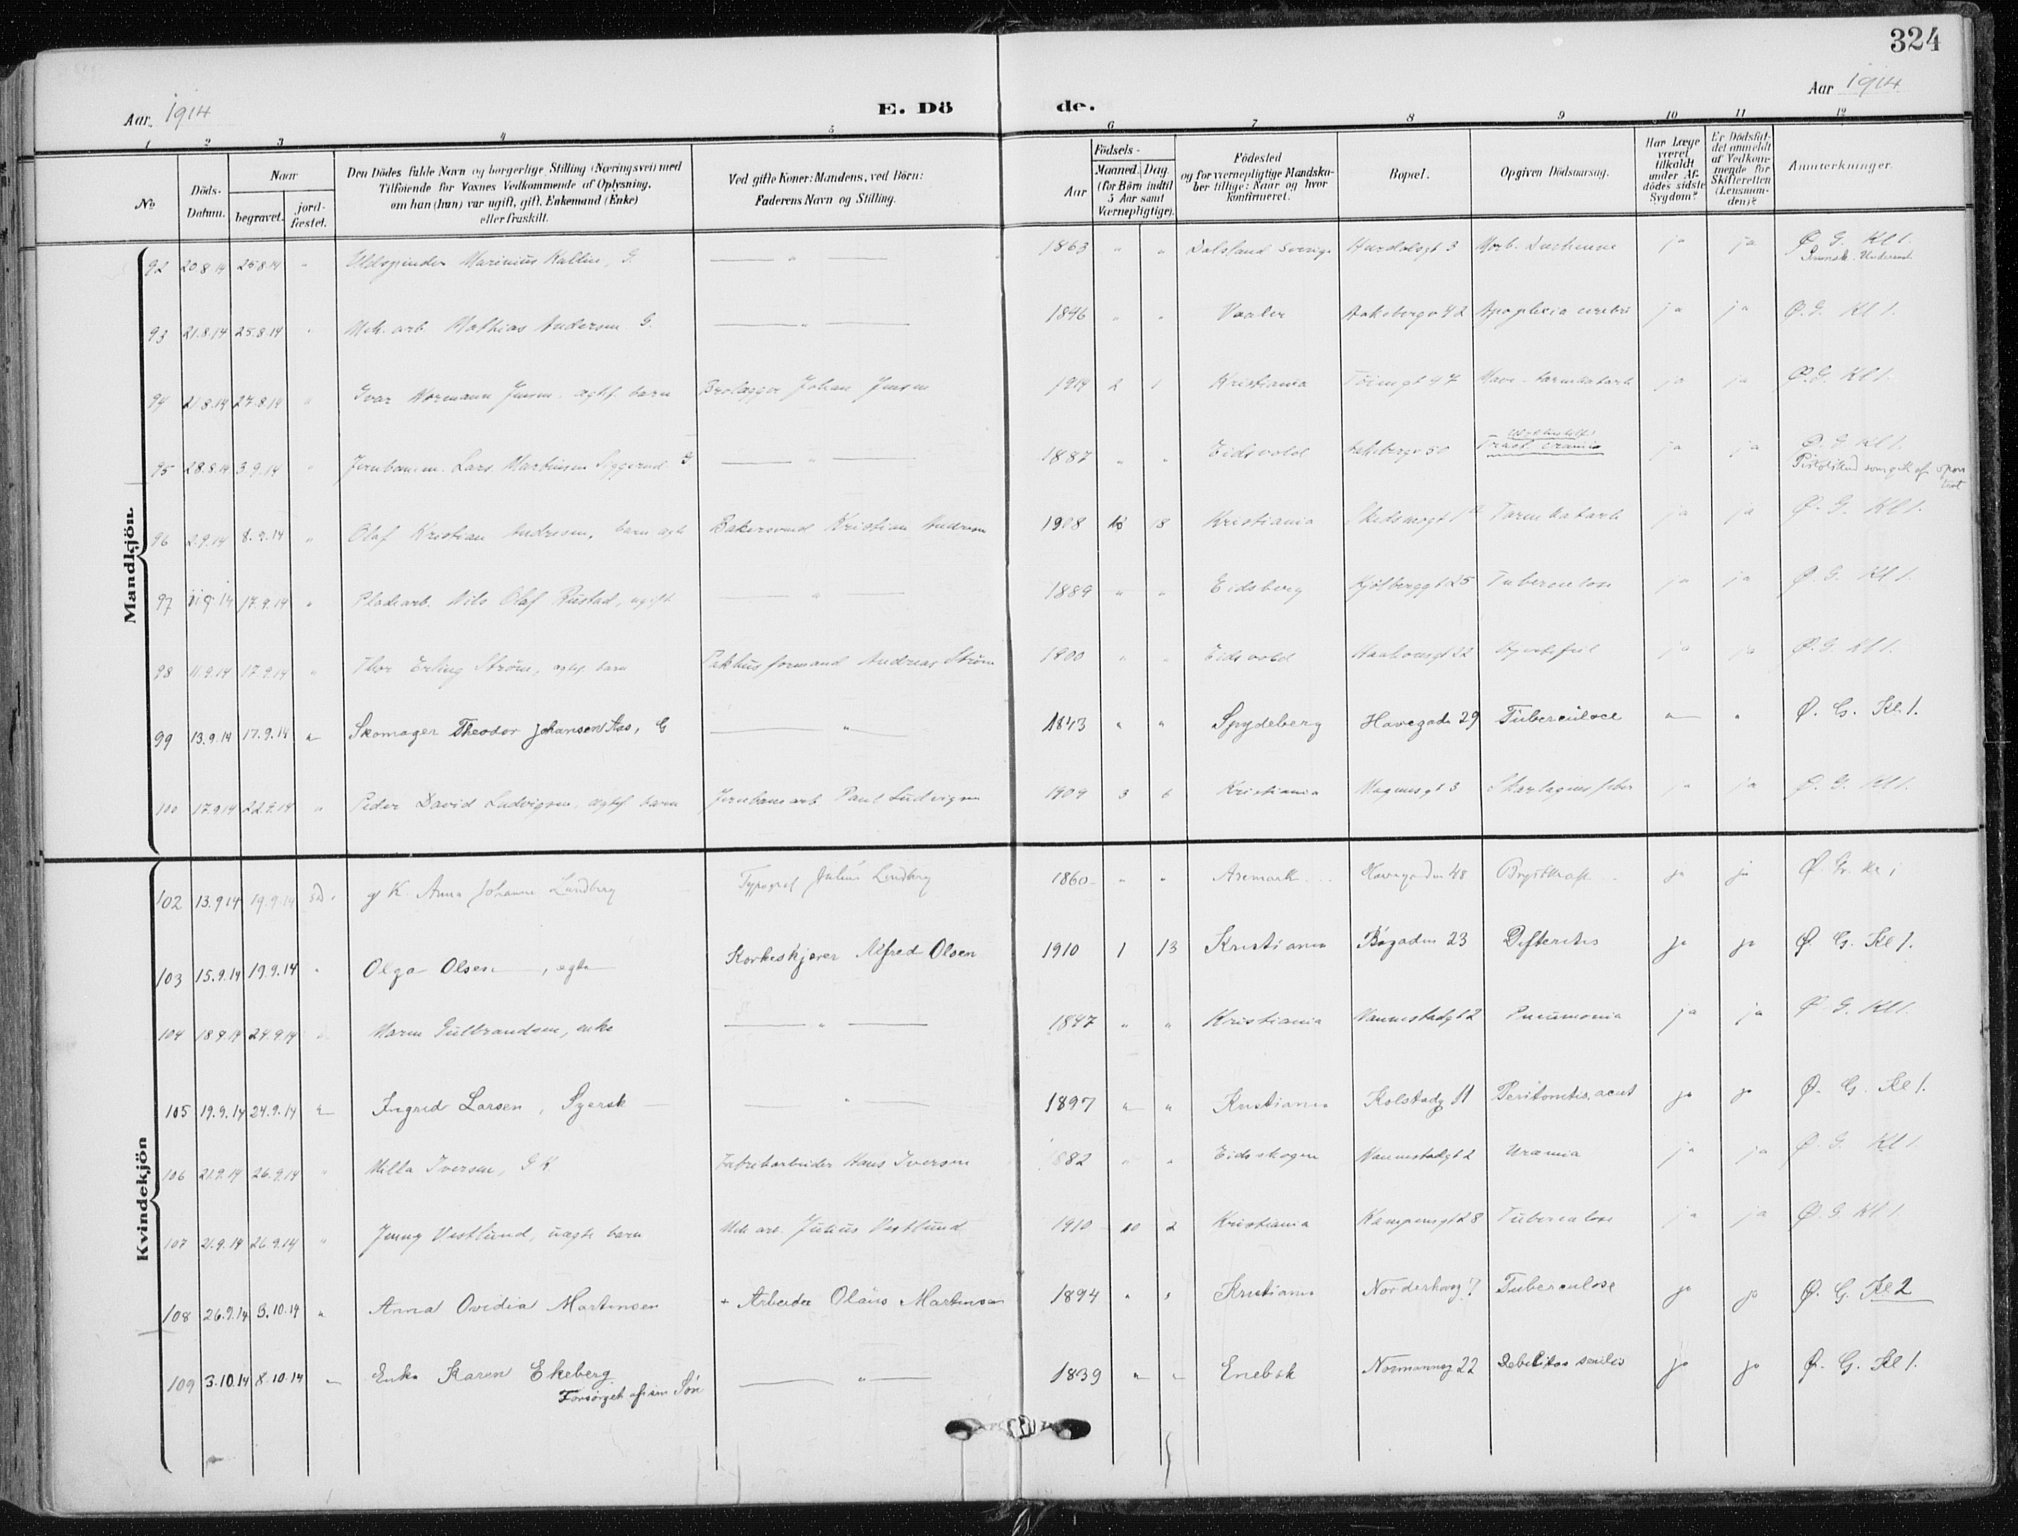 324
Aar 1914
E. Dö de.
Aar 1914
1 2 3 4 5 6 7 8 9 10 11 12
No
Döds-Datum.
Naar
begravet.
jord-fæstet.
Den Dödes fulde Navn og borgerlige Stilling (Næringsvei) med
Tilföiende for Voxnes Vedkommende af Oplysning,
om han (hun) var ugift, gift, Enkemand (Enke)
eller fraskilt.
Ved gifte Koner: Mandens, ved Börn:
Faderens Navn og Stilling.
Födsels-
Aar
Maaned. Dag
(for Börn indtil
5 Aar samt
Værnepligtige).
Födested
og for værnepligtige Mandska-
ber tillige: Naar og hvor
konfirmeret.
Bopæl.
Opgiven Dödsaarsag.
Har Læge
været
tilkaldt
under Af-
dödes sidste
Sygdom?
Er Dödsfal-
det anmeldt
af Vedkom-
mende for
Skifteretten
(Lensman-
den)?
Anmærkninger.
Mandkjön.
92 20.8.14 25.8.14 " Uldspinder Marinius Kallin, G. — " — 1863 " " Dalsland Sverige 3 Morb. Duchenne ja ja Ø. G. Kl 1.
Svensk Undersaat
93 21.8.14 25.8.14 " Mek. arb. Mathias Andersen G. — " — 1846 " " Vaaler Aakebergv 42 Apoplexia cerebri ja ja Ø. G. Kl 1.
94 21.8.14 27.8.14 " Ivar Normann Jensen, ægtef. barn Brolægger Johan Jensen 1914 2 1 Kristiania Töiengt 47 Mave-tarmkatarh ja ja Ø. G. Kl 1.
95 28.8.14 3.9.14 " Jernbanem. Lars Martinsen G — " — 1887 " " Eidsvold Aakebergv 50 Fract cranii ja ja Ø. G. Kl 1.
Pistolskud som gik af
96 2.9.14 8.9.14 " Olaf Kristian Andresen, barn ægte Bakersvend Kristian Andresen 1908 10 18 Kristiania Tarmkatarh ja ja Ø. G. Kl 1.
97 11.9.14 17.9.14 " Pladearb. Nils Olaf Rustad, ugift — " — 1889 " " Eidsberg Kjölberggt 25 Tuberculose ja ja Ø. G. Kl 1.
98 11.9.14 17.9.14 " Thor Erling Ström, ægtef. barn Pakhusformand Andreas Ström 1900 " " Eidsvold Hjertefeil ja ja Ø. G. Kl 1.
99 13.9.14 17.9.14 " Skomager Theodor Johansen Aas, G — " — 1843 " " Spydeberg Havegade 29 Tuberculoce " " Ø. G. Kl. 1.
100 17.9.14 22.9.14 " Peder David Ludvigsen, ægtef. barn Jernbanearb. Paul Ludvigsen 1909 3 6 Kristiania Magnusgt 3 Skarlagensfeber ja ja Ø. G. Kl 1.
Kvindekjön
102 13.9.14 19.9.14 s.D. g K Anna Johanne Lindberg Typograf Julius Lindberg 1860 " " Aremark Havegaden 48 Brystkraft ja ja Ø. G. Kl 1
103 15.9.14 19.9.14 " Olga Olsen, ægte Korkeskjærer Alfred Olsen 1910 1 13 Kristiania Bøgaden 23 Difteritis ja ja Ø. G. Kl 1.
104 18.9.14 24.9.14 " Maren Gulbrandsen, enke — " — 1847 " " Kristiania Nannestadgt 2 Pneumonia ja ja Ø. G. Kl 1.
105 19.9.14 24.9.14 " Ingrid Larsen, Syersk — " — 1897 " " Kristiania Kolstadg 11 Peritonitis, acut ja ja Ø. G. Kl 1.
106 21.9.14 26.9.14 " Milla Iversen, G K Fabrikarbeider Hans Iversen 1882 " " Eidskogen Nannestadgt 2 Uræmia ja ja Ø. G. Kl 1.
107 21.9.14 26.9.14 " Jenny Vestlund, uægte barn Mek arb. Julius Vestlund 1910 10 2 Kristiania Kampensgt 28 Tuberculose ja ja Ø. G. Kl 1.
108 26.9.14 3.10.14 " Anna Ovidia Martinsen + Arbeider Olaus Martinsen 1894 " " Kristiania Tuberculose ja ja Ø. G. Kl 2
109 3.10.14 8.10.14 " Enke Karen Ekeberg — " — 1839 " " Enebak Normannsg 22 Debilitas senilis ja ja Ø. G. Kl 1.
Forsørget af sin Søn